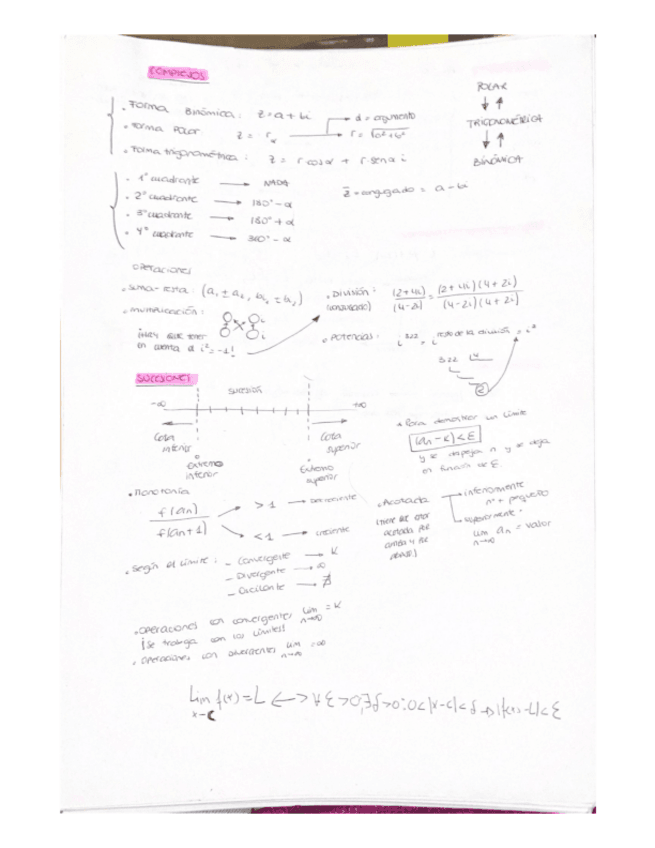 COMPLEJOS
• Forma Binómica: z = a + bi
• Forma Polar: z = r_α → α = argumento
→ r = √a²+b²
• Forma trigonométrica: z = r cosα + r·senα i
POLAR
↓↑
TRIGONOMÉTRICA
↓↑
BINÓMICA
• 1º cuadrante → NADA
• 2º cuadrante → 180° - α
• 3º cuadrante → 180° + α
• 4º cuadrante → 360° - α
z̄ = conjugado = a - bi
OPERACIONES
• Suma-resta: (a₁ ± a₂, bi₁ ± bi₂)
• Multiplicación:
¡HAY QUE tener
en cuenta el i² = -1!
• División: (2+4i)/(4-2i) = (2+4i)(4+2i)/(4-2i)(4+2i)
(conjugado)
• Potencias: i³²² = i^resto de la división = i²
322 |4
2
SUCESIONES
SUCESIÓN
-∞ +∞
Cota
inferior
Cota
superior
Extremo
inferior
Extremo
superior
• Para demostrar un límite
(an - k) < E
y se despeja n y se deja
en función de E.
• Monotonía
f(an)/f(an+1) → >1 → Decreciente
→ <1 → creciente
• Acotada
(tiene que estar
acotada por
arriba y por
abajo)
inferiormente
nº + pequeño
superiormente:
lim an = valor
n→∞
• Según el límite: - Convergente → K
- Divergente → ∞
- Oscilante → ∄
• Operaciones con convergentes lim = K
n→∞
¡Se trabaja con los límites!
• Operaciones con divergentes lim = ∞
n→∞
lim f(x) = L
x→c